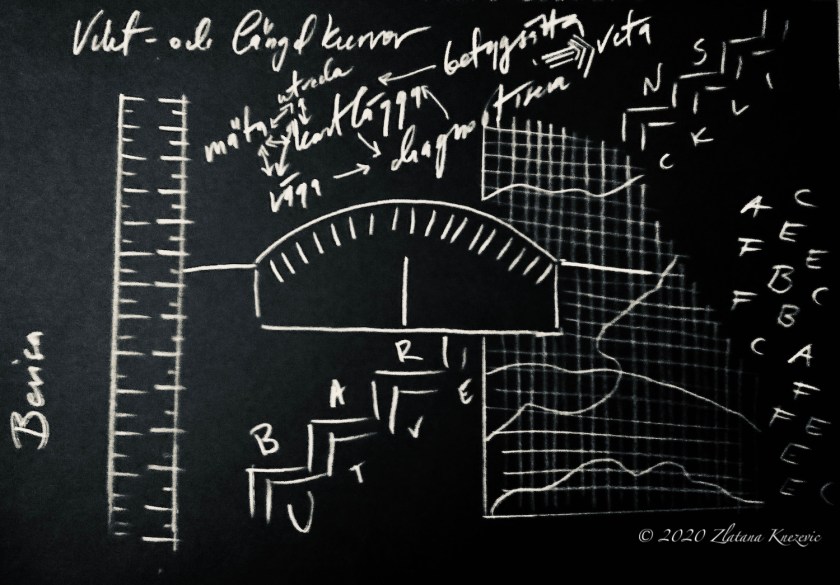 Vikt - och längd kurvor
betygsätta
veta
utreda
mäta
kartlägga
diagnostisera
väga
N S
C K L I
A C
F E
E
B C
F B
C A
F
F E
E
E C
B A R
U T V E
Bevisa
© 2020 Zlatana Knezevic